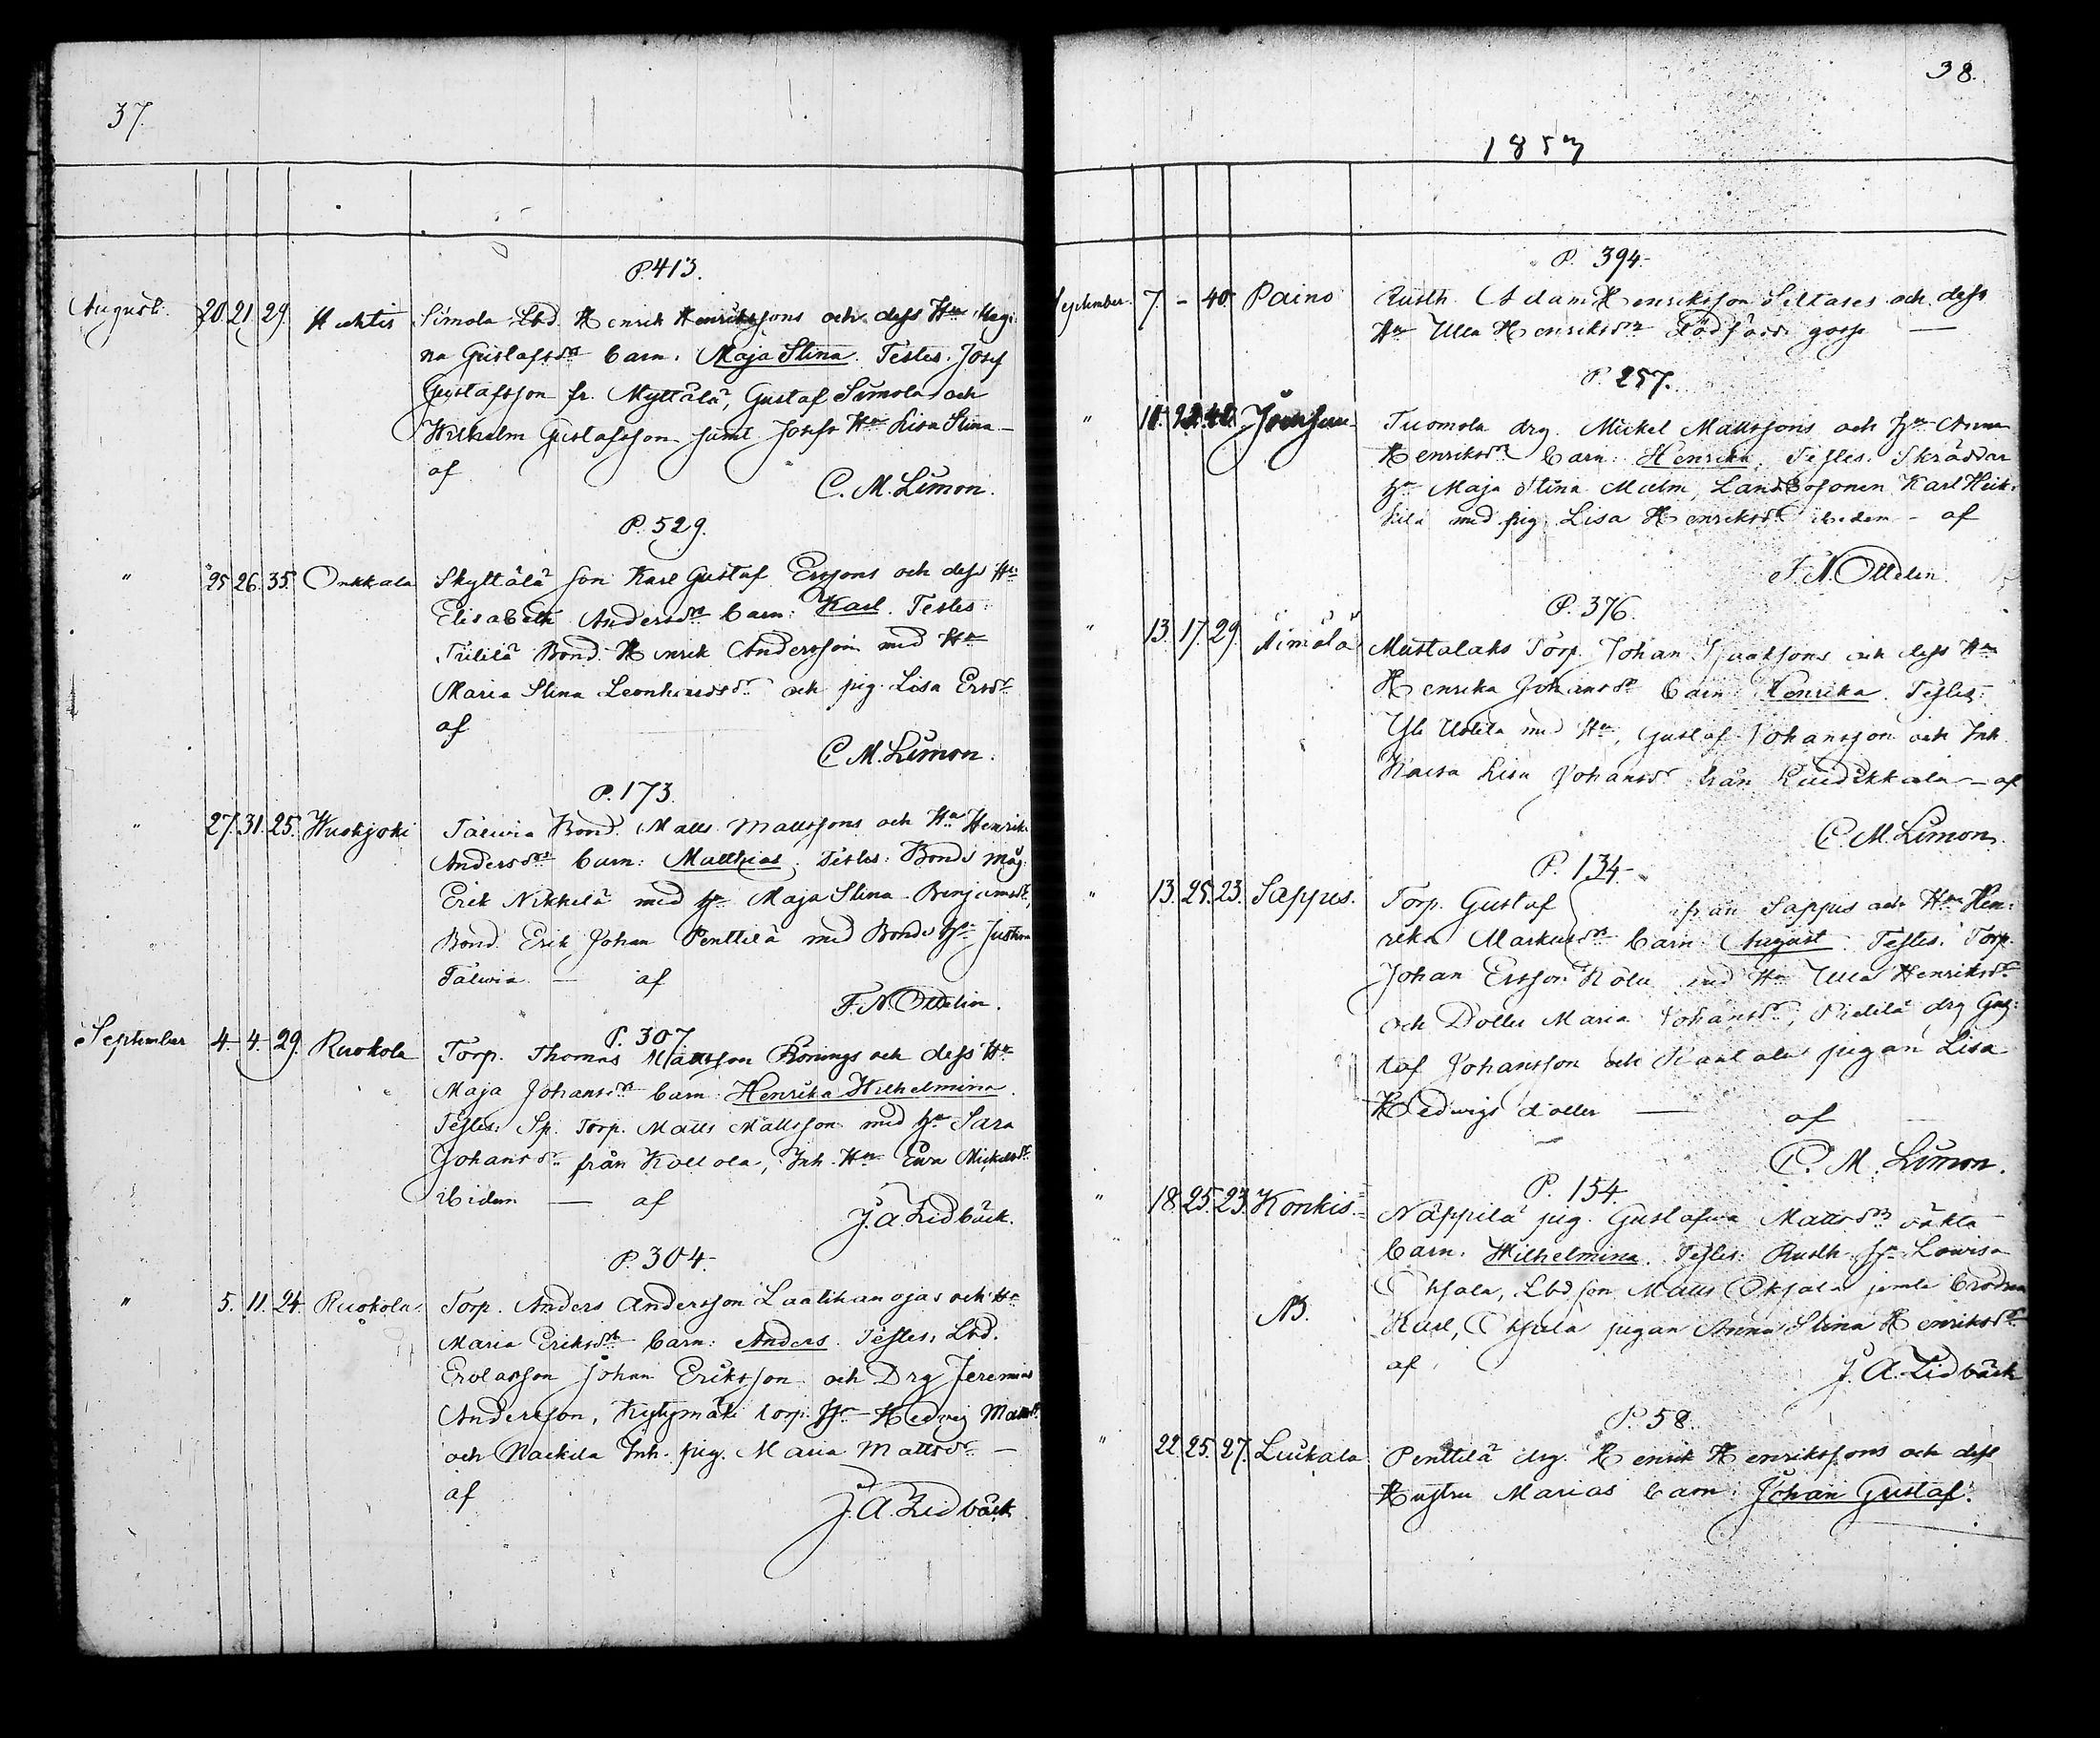 37.
P. 413.
August. 20. 21. 29. Huhtis Simola Lbd. Henrik Henrikssons och dess Hu Regi:
na Gustafsdr barn: Maja Stina. Testes: Josef
Gustafsson fr. Myttälä, Gustaf Simola och
Wilhelm Gustafsson samt Josefs Hu Lisa Stina —
af
C. M. Limon.
P. 529.
" 25. 26. 35. Onkkala Skyttälä son Karl Gustaf Erssons och dess Hu
Elisabeth Andersdr barn: Karl. Testes:
Bond. Henrik Andersson med Hu
Maria Stina Leonhardsdr och pig. Lisa Ersdr
af
C. M. Limon.
P. 173.
" 27. 31. 25. Wuohijoki Talwia Bond. Matts Mattssons och Hu Henrik:
Andersdrs barn: Matthias. Testes: Bonde måg:
Erik Nikkilä med hu Maja Stina Benjamsdr,
Bond. Erik Johan Penttilä med Bonde hu Justina
Talwia — af
F. N. Ottelin.
P. 307.
September 4. 4. 29. Ruokola Torp. Thomas Mattsson Rönings och dess Hu
Maja Johansdr barn: Henrika Wilhelmina.
Testes: Sp. Torp. Matts Mattsson med hu Sara
Johansdr från Kollola, Inh. Hu Ewa Mickelsdr
ibidem — af
J. A. Lidbäck.
P. 304.
" 5. 11. 24. Ruokola. Torp. Anders Andersson Laalikanojas och Hu
Maria Eriksdr barn: Anders. Testes: Lbd.
Erolasson Johan Eriksson och Drg Jeremias
Andersson, torp. Hu Hedvig Mattsdr
och Nackila Inh. pig. Maria Mattsdr —
af
J. A. Lidbäck
38.
1853
P. 394.
September. 7. – 40. Paino Rusth. Adam Henriksson Siltases och dess
Hu Ulla Henriksdrs Dödfödde gosse —
P. 257.
" Tuomola drg. Mickel Mattssons och hu Anna
Henriksdrs barn: Henrika. Testes: Skräddar
hu Maja Stina Malm, Landbosonen Karl Heik:
kilä med pig. Lisa Henriksdr ibidem – af
F. N. Ottelin.
P. 376.
" 13. 17. 29. Aimälä Mustalaks Torp. Johan Isaakssons och dess Hu
Henrika Johansdr barn: Henrika. Testes:
Yli Uotila med Hu, Gustaf Johansson och Inh.
Kaisa Lisa Johansdr från — af
C. M. Limon.
P. 134.
" 13. 25. 23. Sappus. Torp. Gustaf från Sappus och Hu Hen:
rika Markusdrs barn: August. Testes: Torp.
Johan Ersson med Hu Ulla Henriksdr
och Dotter Maria Johansdr, drg Gus:
taf Johansson och pigan Lisa
Hedwigs dotter — af
C. M. Limon.
P. 154.
" 18. 25. 23. Konkis. Näppilä pig. Gustafwa Mattsdrs oäkta
barn: Wilhelmina. Testes: Rusth. hu Lowisa
Okjala, Lbd. son Matts Okjala jemte brodren
NB. Karl, Okjala pigan Anna Stina Henriksdr
af
J. A. Lidbäck
P. 58.
" 22. 25. 27. Luikala Penttilä drg. Henrik Henrikssons och dess
Hustru Marias barn: Johan Gustaf.